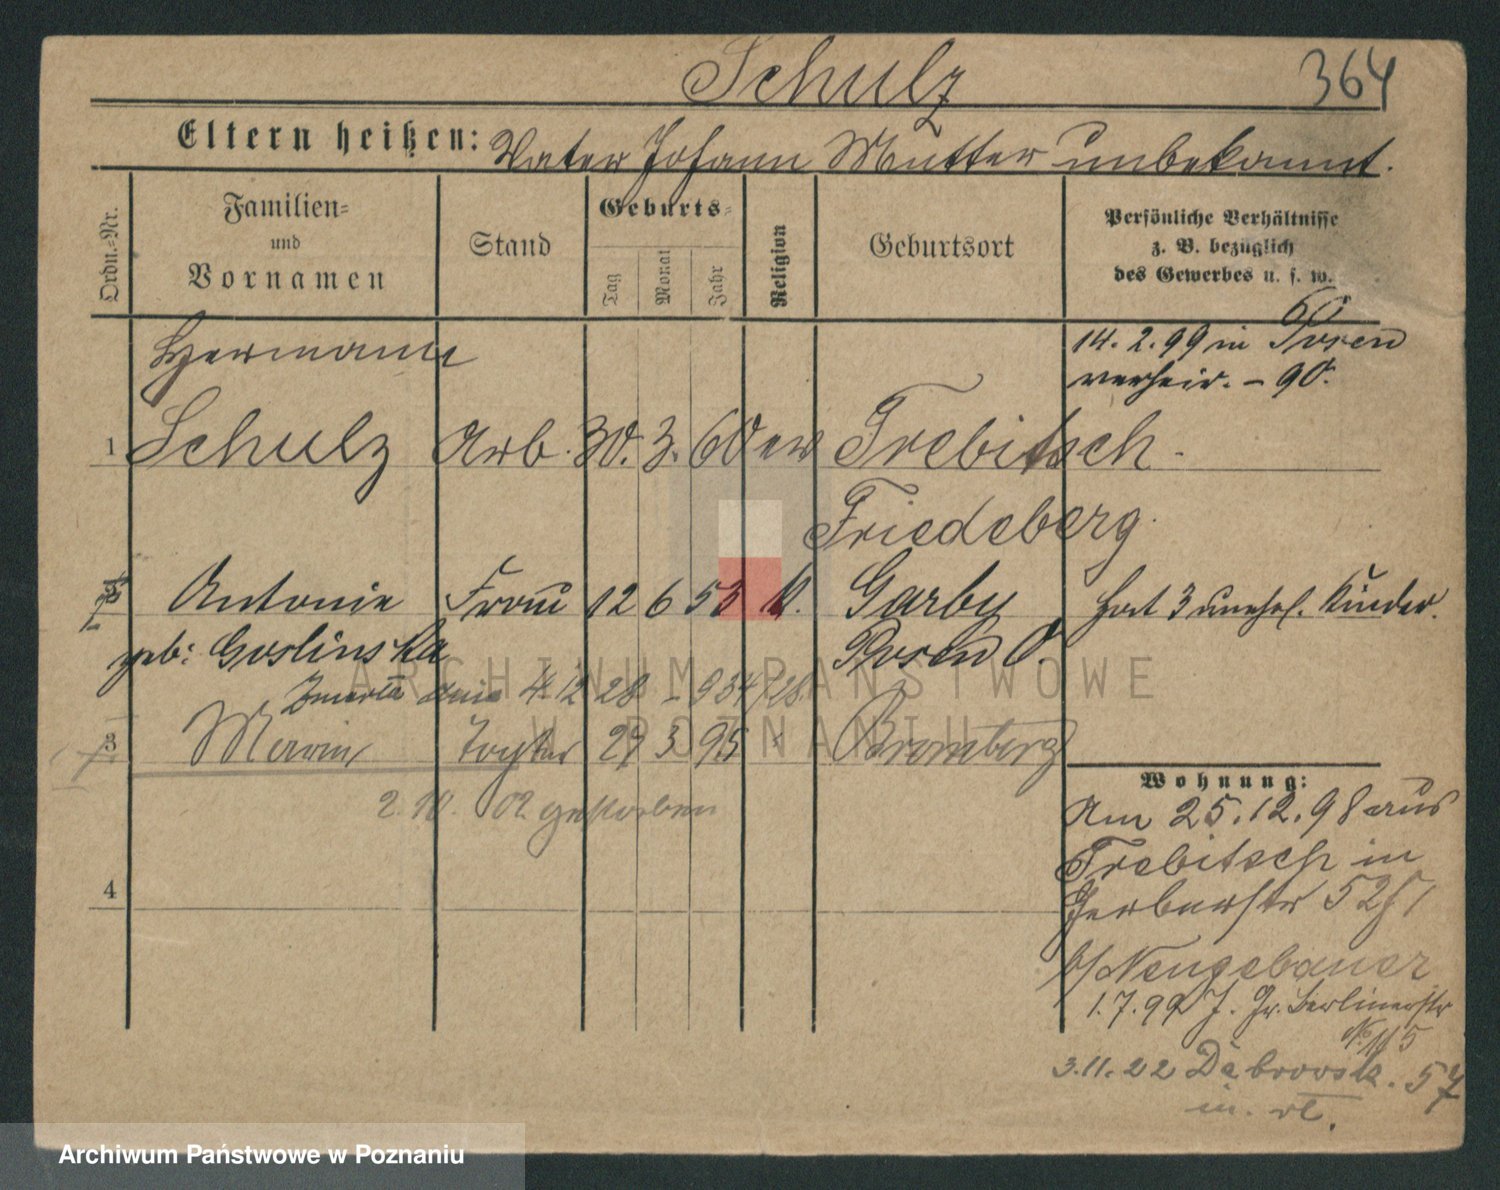 Schulz 364
Eltern heißen: Vater Johann Mutter unbekannt.
Ordn.-Nr.
Familien-
und
Vornamen
Stand
Geburts-
Tag
Monat
Jahr
Religion
Geburtsort
Persönliche Verhältnisse
z. B. bezüglich
des Gewerbes u. s. w.
Hermann
14. 2. 99 in Posen
verheir. - 90.
1 Schulz Arb. 30. 3. 60 ev Trebitsch
Friedeberg.
Antonie Frau 12 6 53 k. Garby Hat 3 unehl. Kinder.
geb: Goslinska Posen O.
Zmarła dnia 4.12 28 - 934/28
3 Maria Tochter 29 3 95 Bromberg
2. 10. 02 gestorben
4
Wohnung:
Am 25.12.98 aus
Trebitsch in
Gerberstr 52
b/Neugebauer
1.7.99 J. Gr. Berlinerstr
No
3.11.22 Dąbrowsk. 57
m. rl.
ARCHIWUM PAŃSTWOWE
W POZNANIU
Archiwum Państwowe w Poznaniu